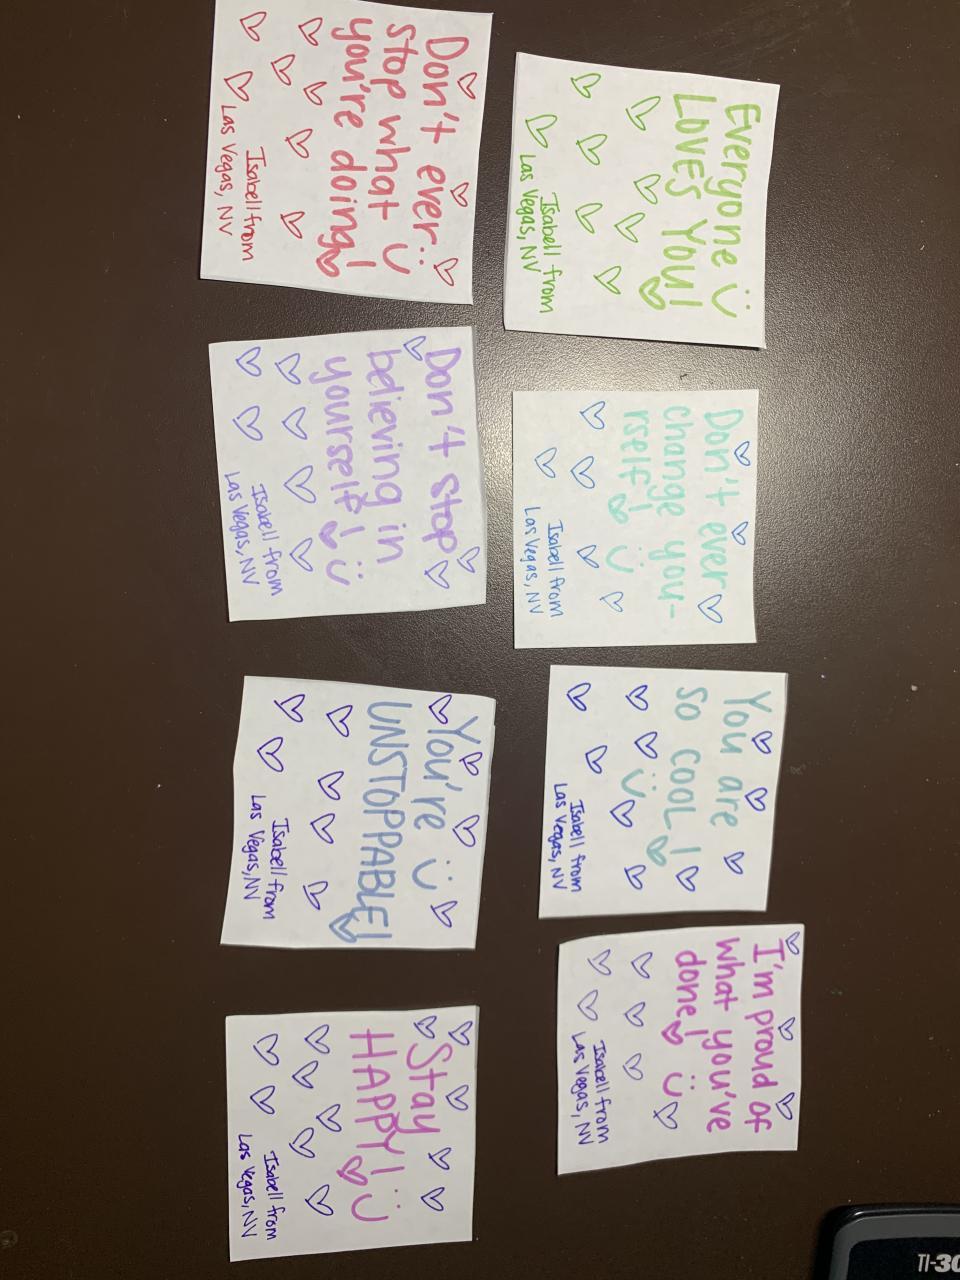 Everyone
LOVES YOU!
Isabell from
Las Vegas, NV
Don't ever
change you-
rself!
Isabell from
Las Vegas, NV
You are
so cool!
Isabell from
Las Vegas, NV
I'm proud of
what you've
done!
Isabell from
Las Vegas, NV
Don't ever
stop what
you're doing!
Isabell from
Las Vegas, NV
Don't stop
believing in
yourself!
Isabell from
Las Vegas, NV
You're
UNSTOPPABLE!
Isabell from
Las Vegas, NV
Stay
HAPPY!
Isabell from
Las Vegas, NV